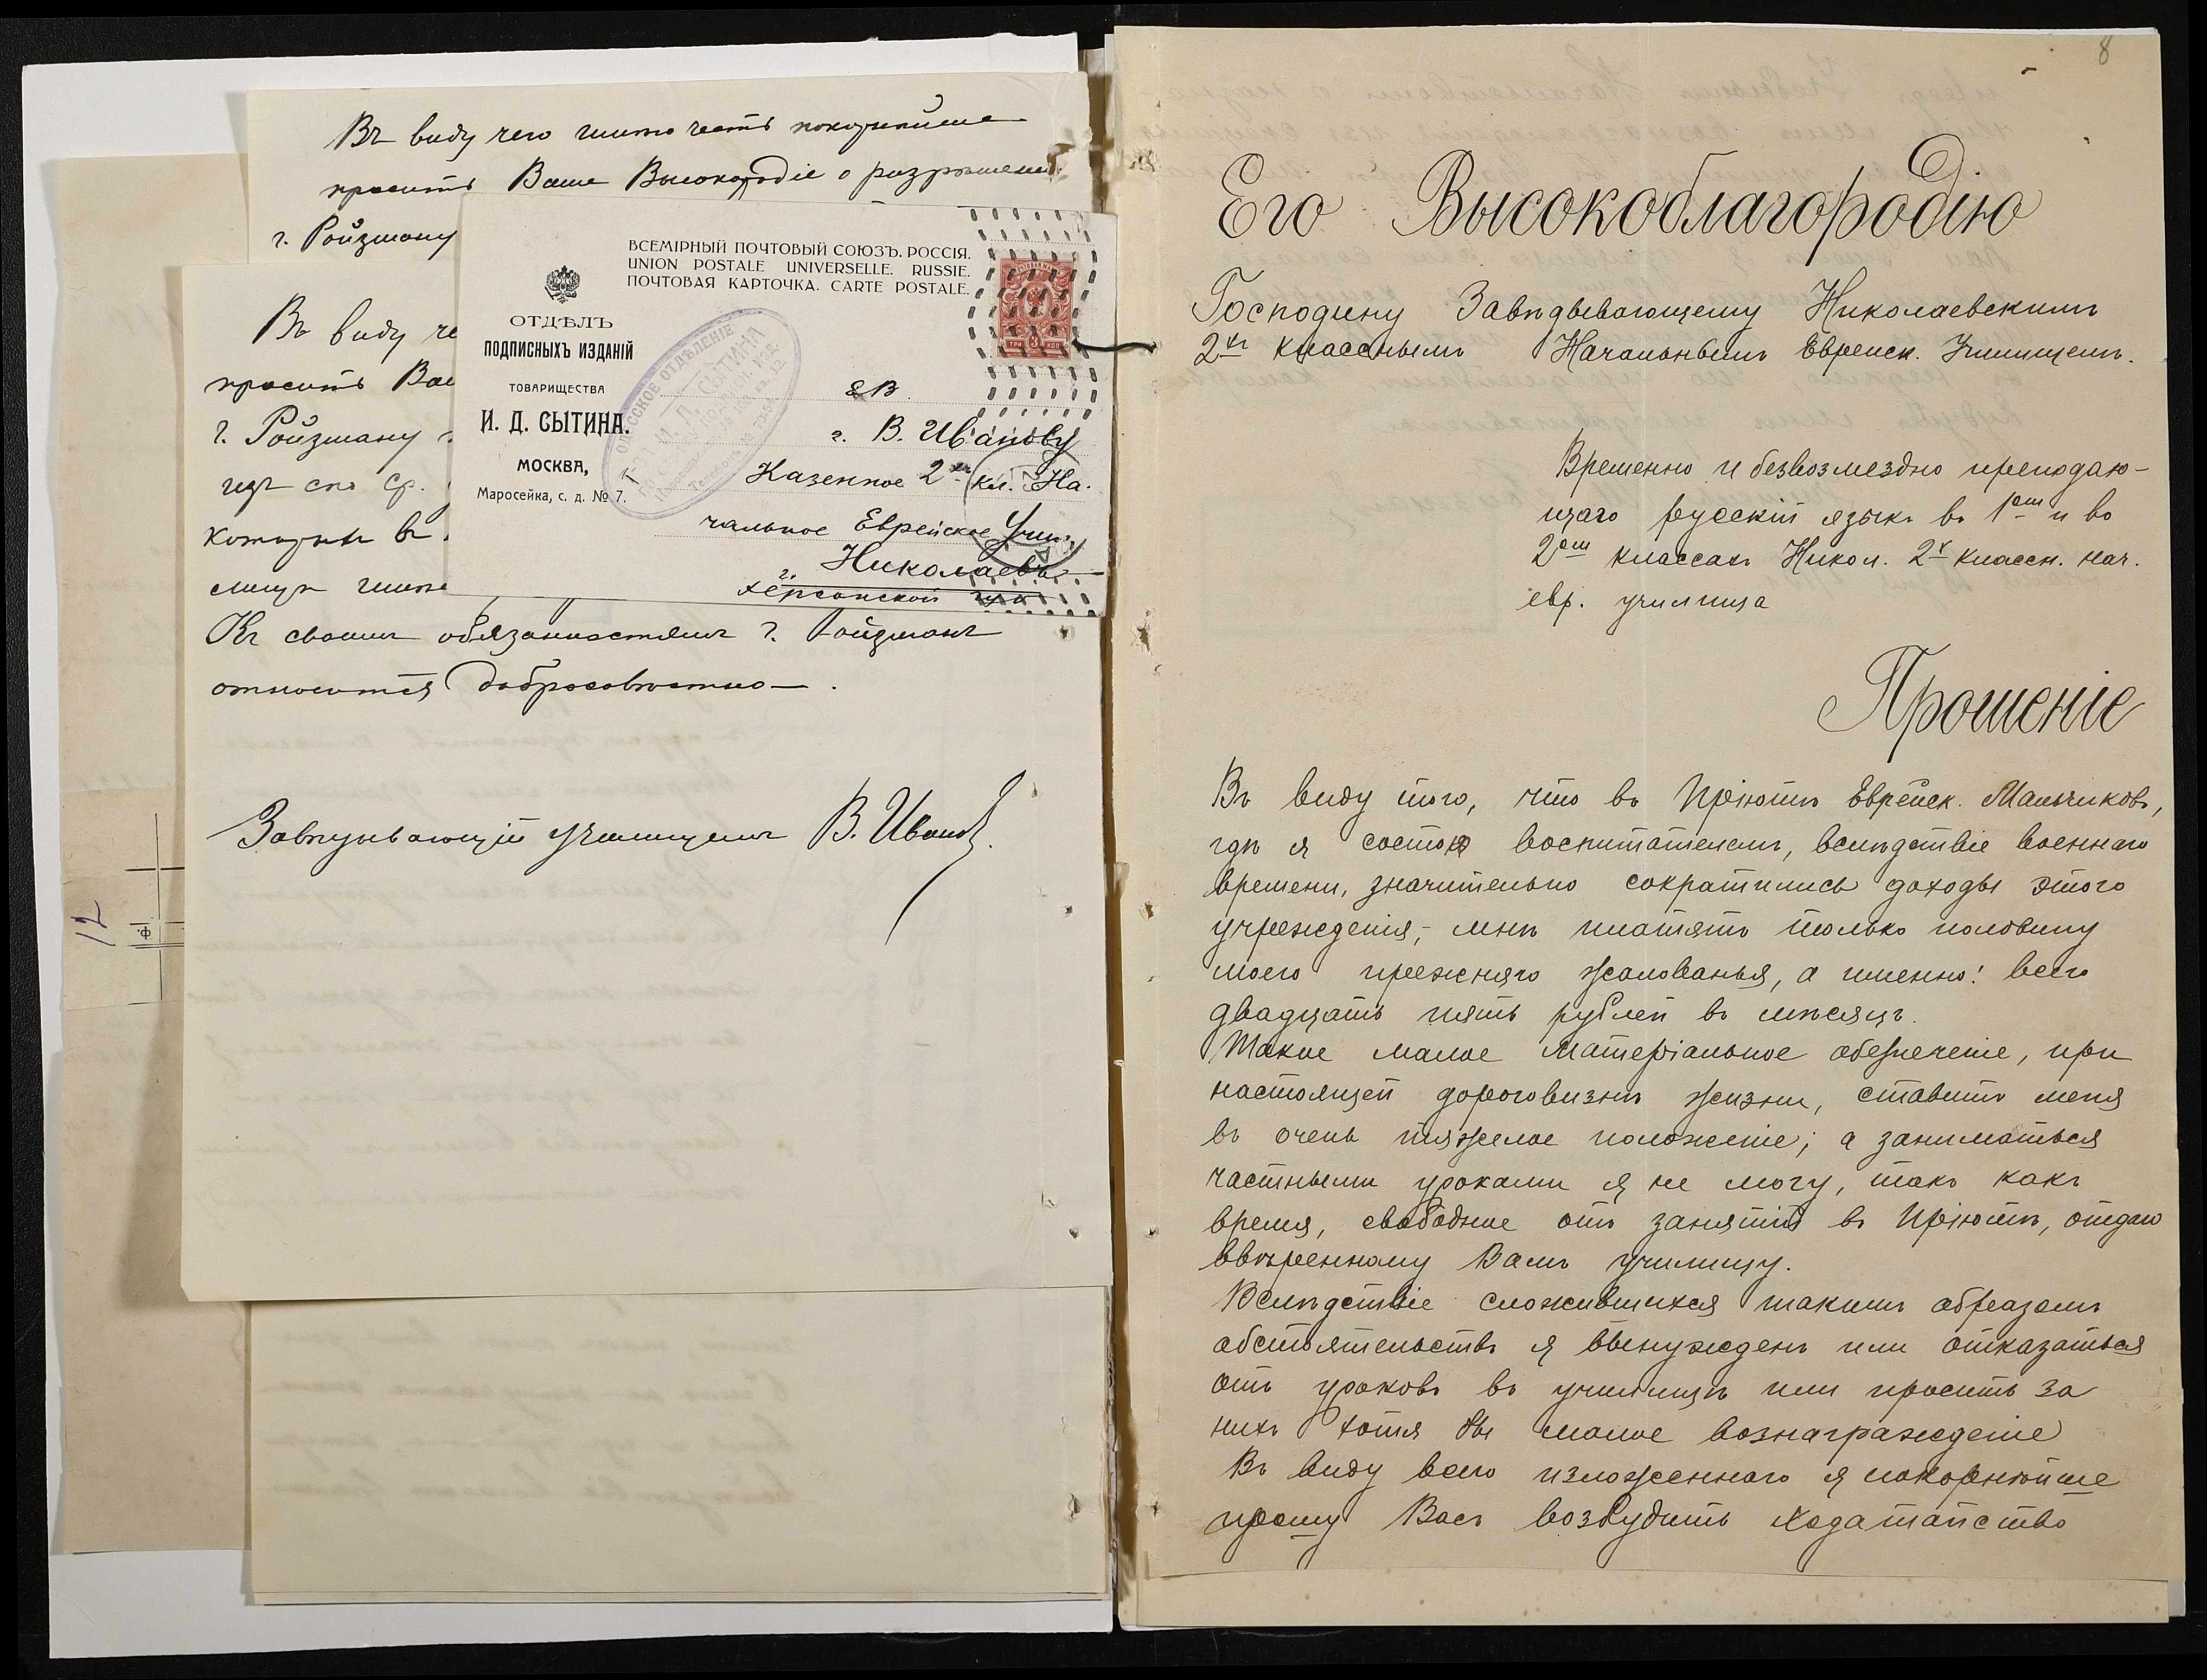 Въ виду чего имѣю честь покорнѣйше
просить Ваше Высокородіе о разрѣшеніи
г. Ройзману
Въ виду че
просить Ваш
г. Ройзману
изъ спе. ср.
которые въ
лищѣ имѣе
Къ своимъ обязанностямъ г. Ройзманъ
относится добросовѣстно.
Завѣдывающій училищемъ В. Ивановъ
12
Ф.
ВСЕМІРНЫЙ ПОЧТОВЫЙ СОЮЗЪ. РОССІЯ.
UNION POSTALE UNIVERSELLE. RUSSIE.
ПОЧТОВАЯ КАРТОЧКА. CARTE POSTALE.
ОТДѢЛЪ
ПОДПИСНЫХЪ ИЗДАНІЙ
ТОВАРИЩЕСТВА
И. Д. СЫТИНА.
МОСКВА,
Маросейка, с. д. № 7.
ОДЕССКОЕ ОТДѢЛЕНІЕ
Т-ВА И. Д. СЫТИНА
ТРИ 3 КОП
ЕВ.
г. В. Иванову
Казенное 2хъ кл. На-
чальное Еврейское Учил.
г. Николаевъ
Херсонской губ.
8
Его Высокоблагородію
Господину Завѣдывающему Николаевскимъ
2хъ класснымъ Начальнымъ Еврейск. Училищемъ.
Временно и безвозмездно преподаю-
щаго русскій языкъ въ 1омъ и во
2омъ классахъ Никол. 2х классн. нач.
евр. училища
Прошеніе
Въ виду того, что въ Пріютѣ Еврейск. Мальчиковъ,
гдѣ я состою воспитателемъ, вслѣдствіе военнаго
времени, значительно сократились доходы этого
учрежденія, - мнѣ платятъ только половину
моего прежняго жалованья, а именно: всего
двадцать пять рублей въ мѣсяцъ.
Такое малое матеріальное обезпеченіе, при
настоящей дороговизнѣ жизни, ставитъ меня
въ очень тяжелое положеніе; а заниматься
частными уроками я не могу, такъ какъ
время, свободное отъ занятій въ Пріютѣ, отдаю
ввѣренному Вамъ училищу.
Вслѣдствіе сложившихся такимъ образомъ
обстоятельствъ я вынужденъ или отказаться
отъ уроковъ въ училищѣ или просить за
нихъ хотя бы малое вознагражденіе
Въ виду всего изложеннаго я покорнѣйше
прошу Васъ возбудить ходатайство